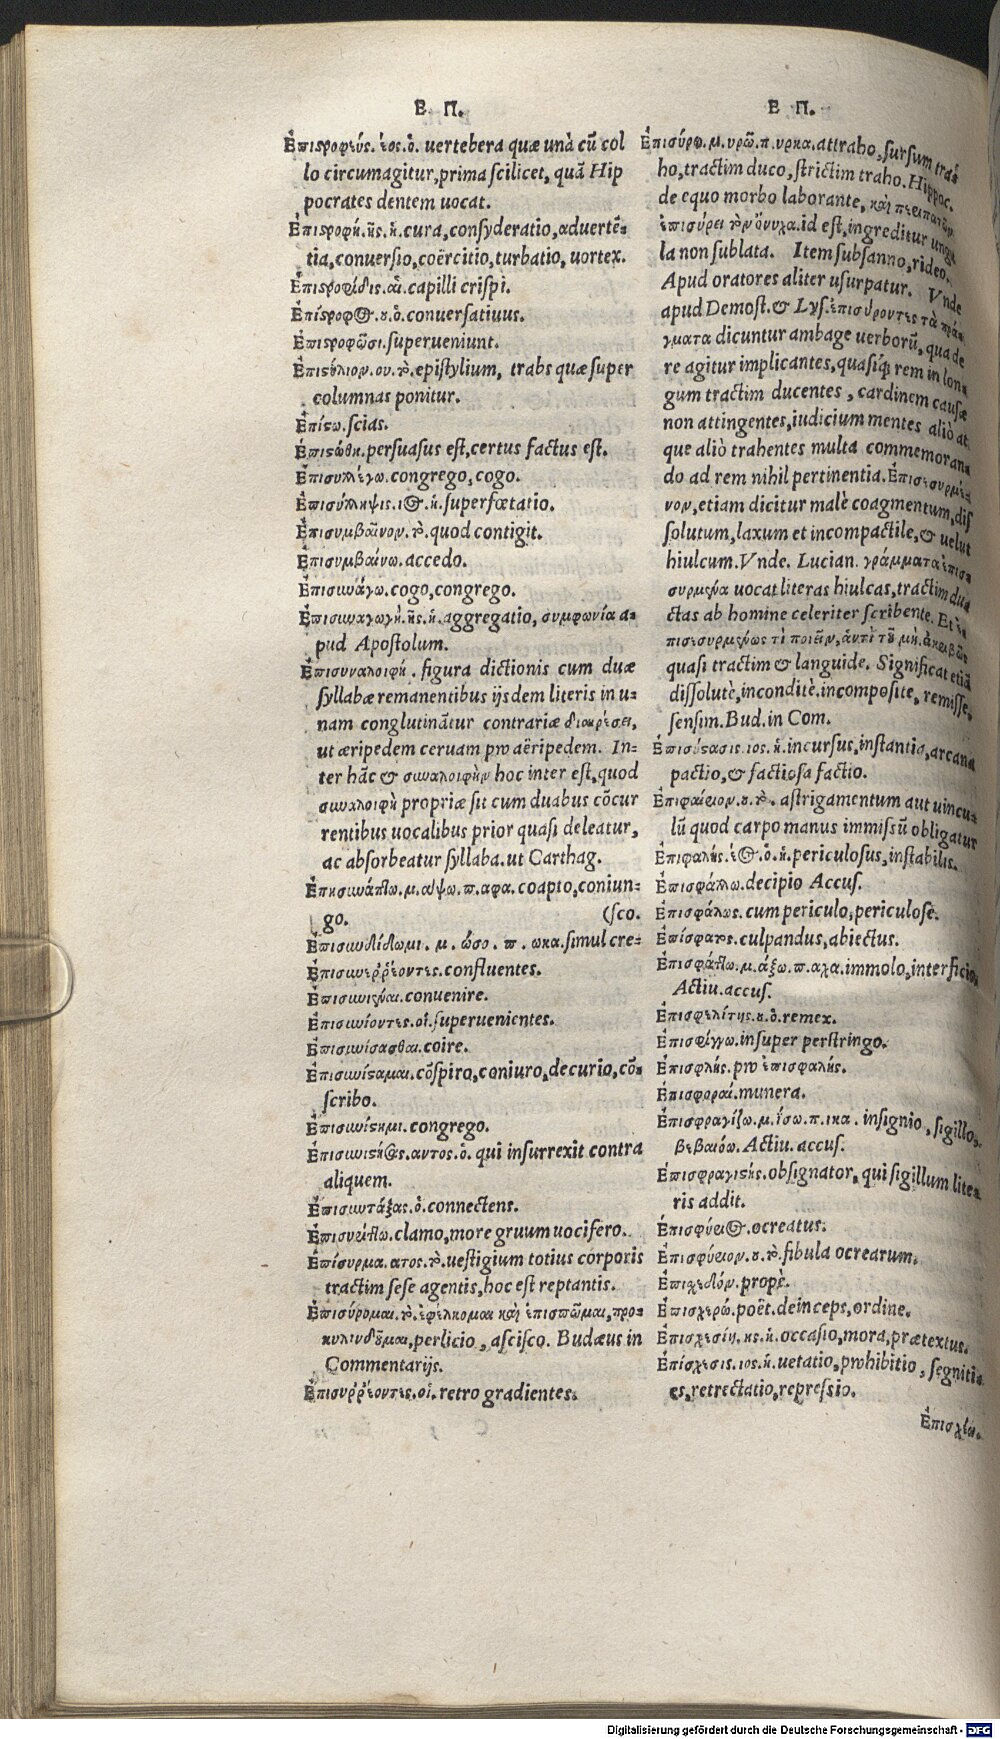 Ε Π.
Ἐπιστροφεύς. έος. ὁ. uertebera quæ unà cũ col
lo circumagitur, prima scilicet, quã Hip
pocrates dentem uocat.
Ἐπιστροφή. ῆς. ἡ. cura, consyderatio, aduertẽ-
tia, conuersio, coërcitio, turbatio, uortex.
Ἐπιστροφίδες. αἱ. capilli crispi.
Ἐπίστροφος. ου. ὁ. conuersatiuus.
Ἐπιστροφῶσι. superueniunt.
Ἐπιστύλιον. ου. τὸ. epistylium, trabs quæ super
columnas ponitur.
Ἐπίστω. scias.
Ἐπιστώθη. persuasus est, certus factus est.
Ἐπισυλλέγω. congrego, cogo.
Ἐπισύλληψις. ιος. ἡ. superfœtatio.
Ἐπισυμβαῖνον. τὸ. quod contigit.
Ἐπισυμβαίνω. accedo.
Ἐπισυνάγω. cogo, congrego.
Ἐπισυναγωγὴ. ῆς. ἡ. aggregatio, συμφωνία a-
pud Apostolum.
Ἐπισυναλοιφή. figura dictionis cum duæ
syllabæ remanentibus ijsdem literis in u-
nam conglutinãtur contrariæ διαιρέσει,
ut æripedem ceruam pro aëripedem. In-
ter hãc & συναλοιφὴν hoc inter est, quod
συναλοιφὴ propriæ sit cum duabus cõcur
rentibus uocalibus prior quasi deleatur,
ac absorbeatur syllaba. ut Carthag.
Ἐπισυνάπτω. μ. αψω. π. αφα. coapto, coniun-
go. (sco.
Ἐπισυνδίδωμι. μ. ώσο. π. ωκα. simul cre-
Ἐπισυνεῤῥέοντες. confluentes.
Ἐπισυνιέναι. conuenire.
Ἐπισυνίοντες. οἱ. superuenientes.
Ἐπισυνίσασθαι. coire.
Ἐπισυνίσταμαι. cõspiro, coniuro, decurio, cõ-
scribo.
Ἐπισυνίστημι. congrego.
Ἐπισυνιστὰς. αντος. ὁ. qui insurrexit contra
aliquem.
Ἐπισυντάξας. ὁ. connectens.
Ἐπισυρίττω. clamo, more gruum uocifero.
Ἐπίσυρμα. ατος. τὸ. uestigium totius corporis
tractim sese agentis, hoc est reptantis.
Ἐπισύρομαι. τὸ. ἐφέλκομαι καὶ ἐπισπῶμαι, προσ-
κυλινδοῦμαι, perlicio, ascisco. Budæus in
Commentarijs.
Ἐπισυῤῥέοντες. οἱ. retro gradientes.
Ε Π.
Ἐπισύρω. μ. υρῶ. π. υρκα. attraho, sursum tra
ho, tractim duco, strictim traho. Hippoc.
de equo morbo laborante, καὶ περιπατῶν
ἐπισύρει τὸν ὄνυχα. id est, ingreditur ungu
la non sublata. Item subsanno, rideo.
Apud oratores aliter usurpatur. Vnde
apud Demost. & Lys. ἐπισύροντες τὰ πρά-
γματα dicuntur ambage uerborũ, qua de
re agitur implicantes, quasiq́; rem in lon
gum tractim ducentes, cardinem causæ
non attingentes, iudicium mentes aliò at
que aliò trahentes multa commemoran
do ad rem nihil pertinentia. Ἐπισεσυρμέ-
νον, etiam dicitur malè coagmentum, dis
solutum, laxum et incompactile, & uelut
hiulcum. Vnde. Lucian. γράμματα ἐπισε
συρμένα uocat literas hiulcas, tractim du
ctas ab homine celeriter scribente. Et ἐ-
πισεσυρμένως τὶ ποιεῖν, ἀντὶ τοῦ μὴ ἀκριβῶς
quasi tractim & languide. Significat etiã
dissolutè, inconditè. incomposite, remisse,
sensim. Bud. in Com.
Ἐπισύστασις. ιος. ἡ. incursus, instantia, arcana
pactio, & factiosa factio.
Ἐπισφαίριον. ου. τὸ. astrigamentum aut uincu-
lũ quod carpo manus immissũ obligatur
Ἐπισφαλής. έος. ὁ. ἡ. periculosus, instabilis.
Ἐπισφάλλω. decipio Accus.
Ἐπισφάλως. cum periculo, periculosè.
Ἐπίσφατος. culpandus, abiectus.
Ἐπισφάττω. μ. άξω. π. αχα. immolo, interficio,
Actiu. accus.
Ἐπισφελίτης. ου. ὁ. remex.
Ἐπισφίγγω. insuper perstringo.
Ἐπισφλής. pro ἐπισφαλής.
Ἐπισφοραί. munera.
Ἐπισφραγίζω. μ. ίσω. π. ικα. insignio, sigillo,
βεβαιόω. Actiu. accus.
Ἐπισφραγιστής. obsignator, qui sigillum lite-
ris addit.
Ἐπισφύριος. ocreatus.
Ἐπισφύριον. ου. τὸ. fibula ocrearum.
Ἐπισχεδόν. propè.
Ἐπισχερώ. poët. deinceps, ordine.
Ἐπισχεσίη. ης. ἡ. occasio, mora, prætextus.
Ἐπίσχεσις. ιος. ἡ. uetatio, prohibitio, segniti-
es, retrectatio, repressio.
Ἐπισχέω.
Digitalisierung gefördert durch die Deutsche Forschungsgemeinschaft - DFG